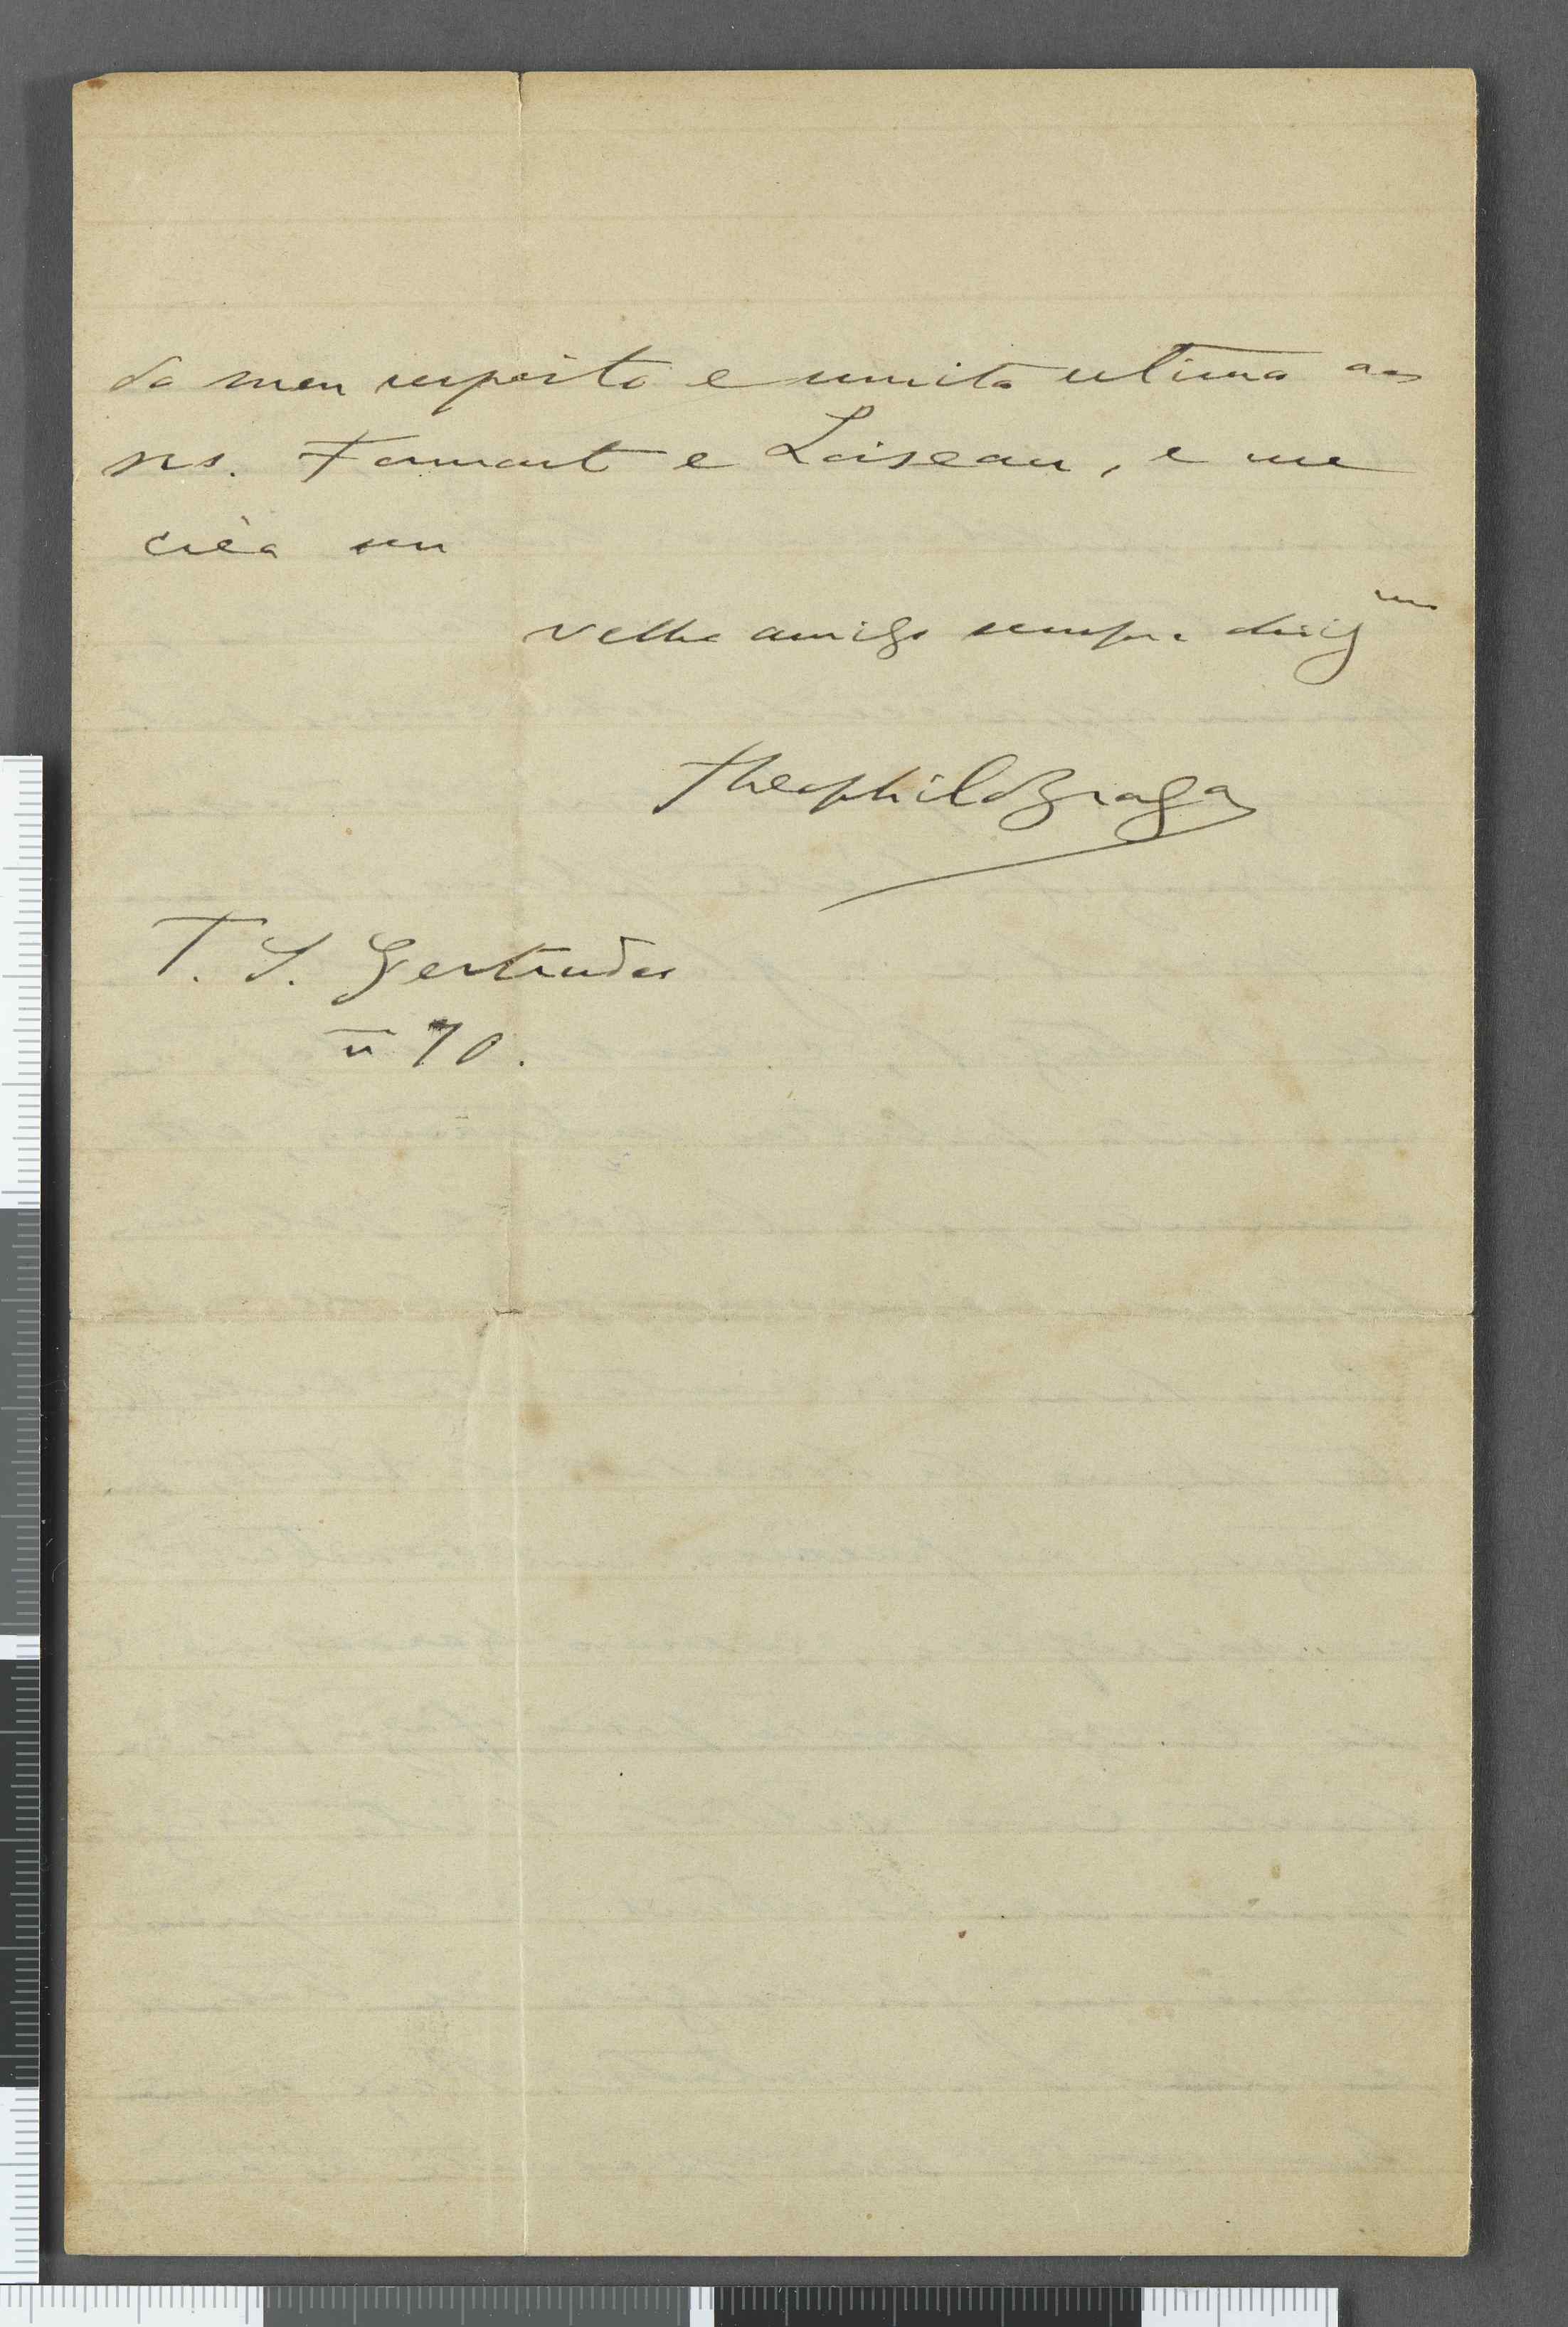 do meu respeito e muita estima aos
srs. Formont e Loiseau, e me
crêa seu
velho amigo sempre obrig mo
Theophilo Braga
T. S. Gertrudes
nº 70.